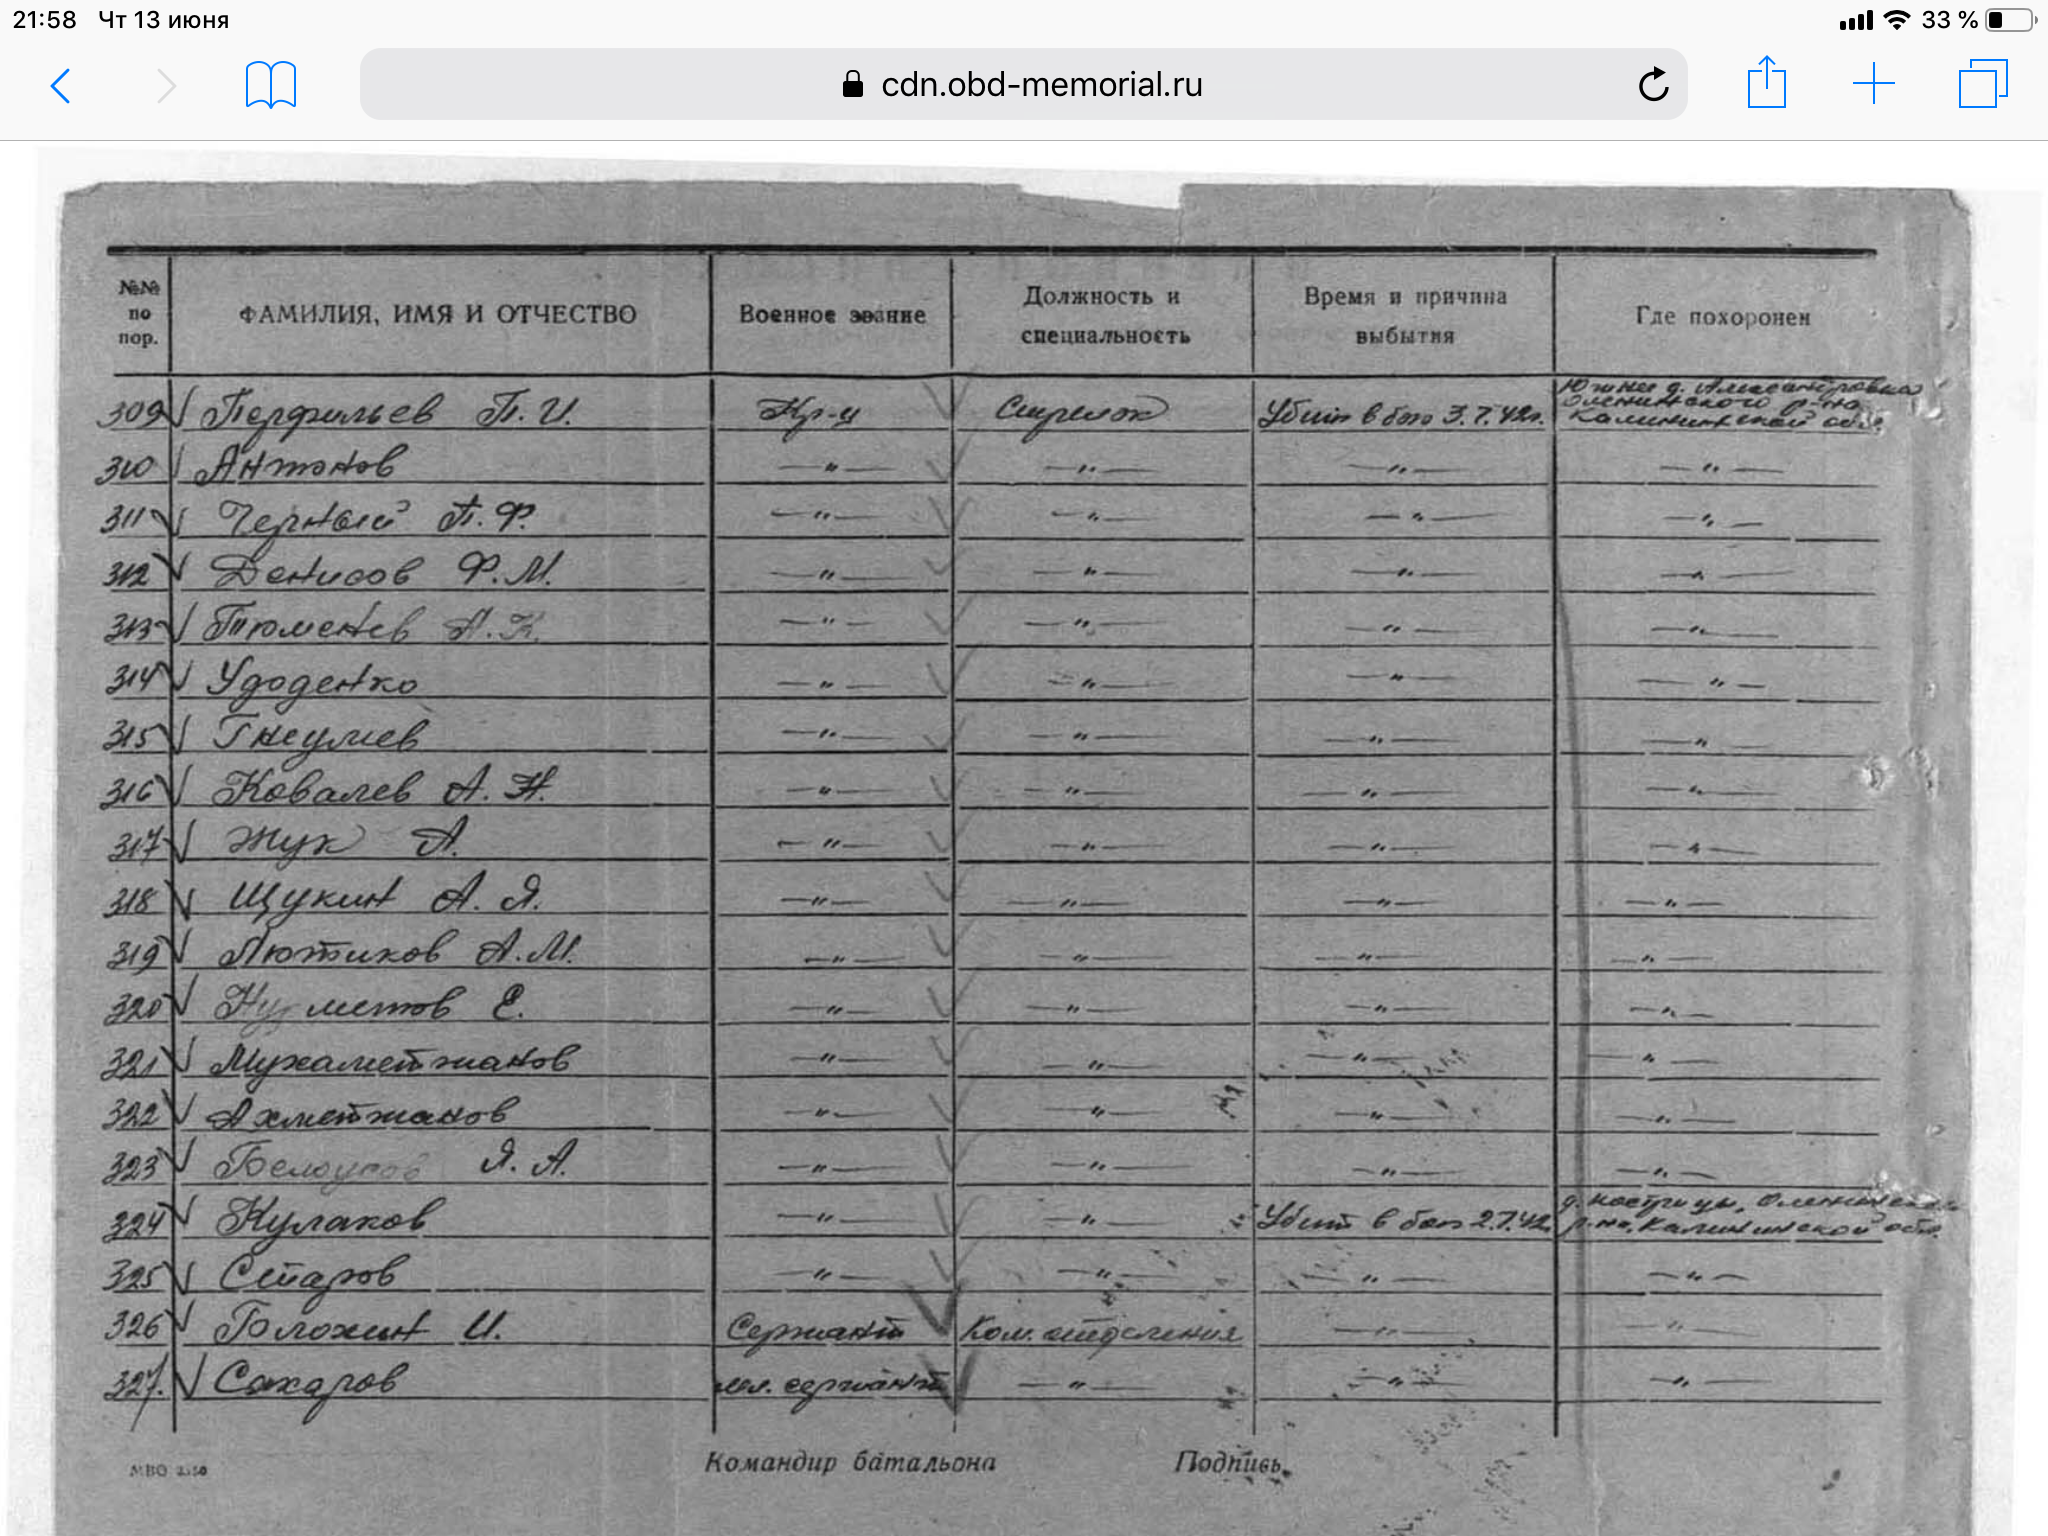 21:58 Чт 13 июня 33 %
cdn.obd-memorial.ru
№№ по пор. ФАМИЛИЯ, ИМЯ И ОТЧЕСТВО Военное звание Должность и специальность Время и причина выбытия Где похоронен
309 Перфильев П. И. Кр-ц Стрелок Убит в бою 3.7.42г. Южнее д. Александровка Оленинского р-на Калининской обл.
310 Антонов —〃— —〃— —〃— —〃—
311 Черный П. Ф. —〃— —〃— —〃— —〃—
312 Денисов Ф. М. —〃— —〃— —〃— —〃—
313 Тюменев А. К. —〃— —〃— —〃— —〃—
314 Удоденко —〃— —〃— —〃— —〃—
315 —〃— —〃— —〃— —〃—
316 Ковалев А. Н. —〃— —〃— —〃— —〃—
317 Жук А. —〃— —〃— —〃— —〃—
318 Щукин А. Я. —〃— —〃— —〃— —〃—
319 Лютиков А. М. —〃— —〃— —〃— —〃—
320 Е. —〃— —〃— —〃— —〃—
321 Мухаметжанов —〃— —〃— —〃— —〃—
322 Ахметжанов —〃— —〃— —〃— —〃—
323 Я. А. —〃— —〃— —〃— —〃—
324 Кулаков —〃— —〃— Убит в бою 2.7.42г. д. Оленинского р-на, Калининской обл.
325 Старов —〃— —〃— —〃— —〃—
326 И. Сержант Ком. отделения —〃— —〃—
327. Сахаров мл. сержант —〃— —〃— —〃—
Командир батальона Подпись
МВО